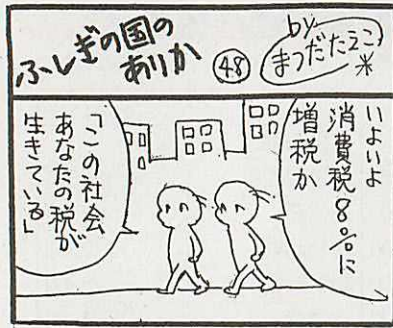 ふしぎの国の
ありか
㊽
by
まつだたえこ
※
いよいよ
消費税8%に
増税か
「この社会
あなたの税が
生きている」